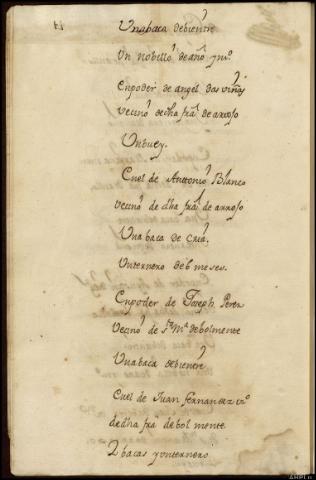 14
Una baca de bientre
Un nobillo de año y mº
En poder de angel dos viñas
Vecino de dha frª de arrojo
Un buey.
En el de Anttonio Blanco
Vecino de dha frª de arrojo
Una baca de cria.
Un ternero de 6 meses.
En poder de Joseph Perez
Vecino de Stª Mª de bolmente
Una baca de bientre
En el de Juan fernandez vº
de dha frª de bolmente
2 bacas y un ternero